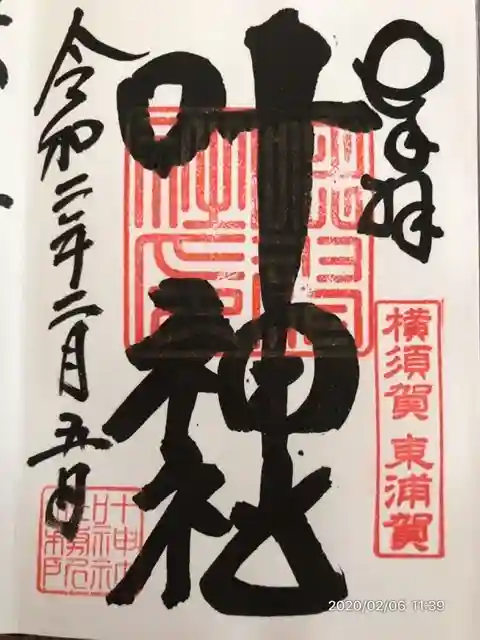 奉拝
横須賀 東浦賀
叶神社
令和二年二月五日
叶神社
社務所
2020/02/06 11:39